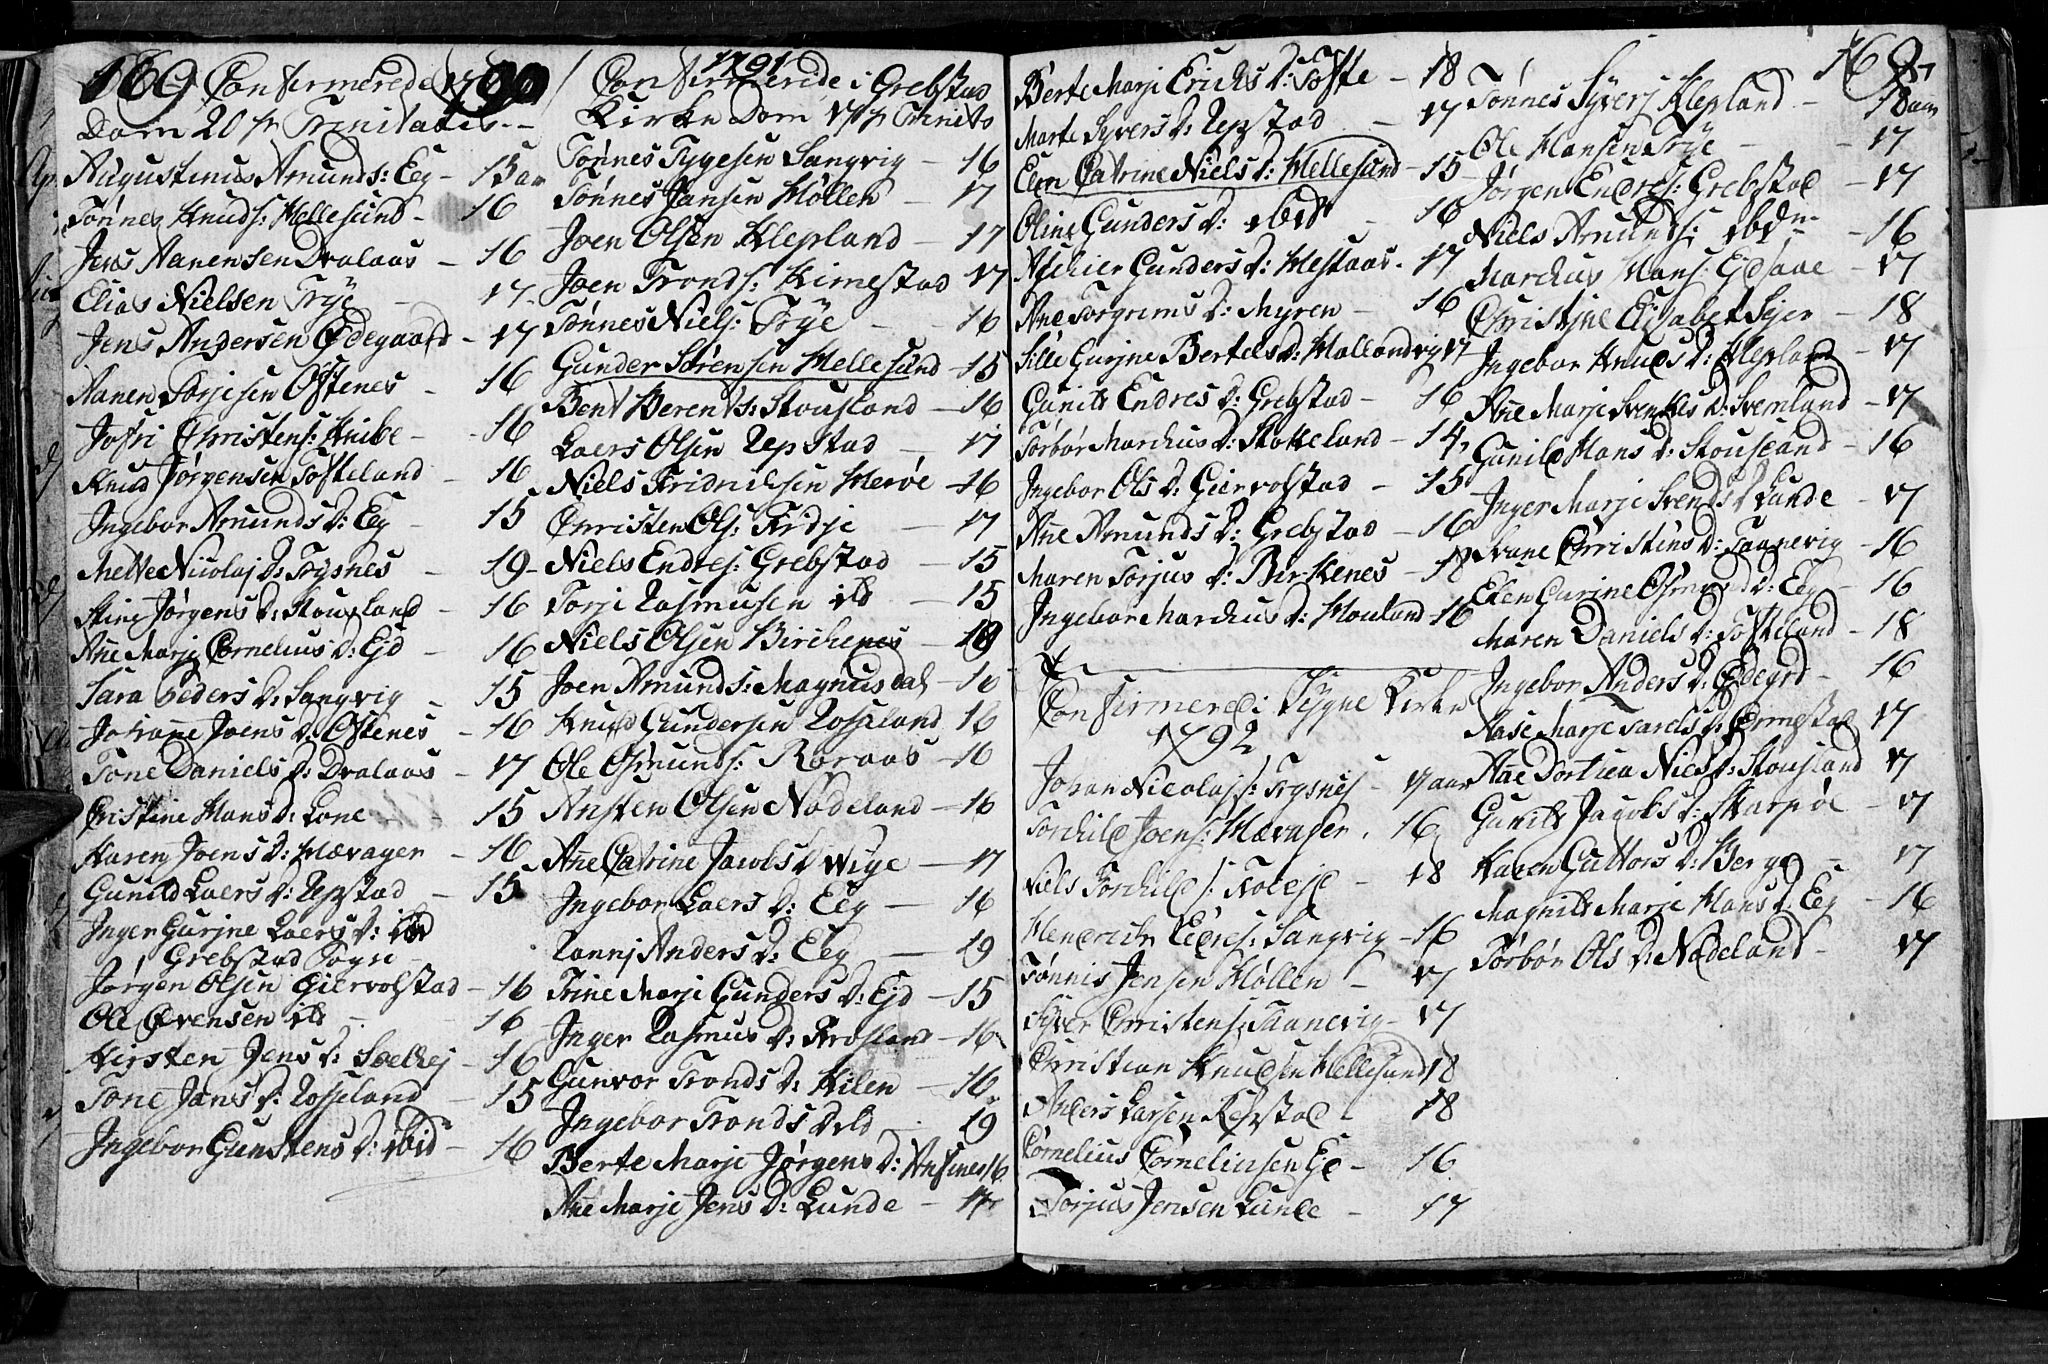 169 Confirmerede 1790
Dom 20 p Trinitatis
Augustinus Amunds: Eeg - 15 aar
Tønnes Knuds: Hellesund - 16
Jens Aanensen Dvalaas - 16
Elias Nielsen Trye - 17
Jens Andersen Ødegaard - 17
Aanen Torjesen Østenes - 16
Jofri Christens: Knibe - 16
Knud Jørgensen Tofteland - 16
Ingebor Amunds D: Eeg - 15
Mette Nicolaj D: Trysnes - 19
Stine Jørgens D: Stousland - 16
Ane Marj Cornelius D: Ejd - 16
Sara Peders D: Langvig - 15
Johanne Joens D: Østenes - 16
Tone Daniels D: Dvalaas - 17
Cristine Hans D: Lone 15
Karen Joens D: Hævager - 16
Gunild Laers D: Repstad - 15
Inger Gurine Laers D: ibd
Grebstad Sogn
Jørgen Olsen Giervolstad - 16
Ole Evensen ib - 16
Kirsten Jens D: - 16
Tone Jans D: Rosseland - 15
Ingebor Gunstens D: ibid - 16
1791
Confirmerede i Grebstad
Kirke Dom 17 p Trinit
Tønnes Tygesen Langvig - 16
Tønnes Jansen Møllen - 17
Joen Olsen Klepland - 17
Joen Tronds: Kimestad 17
Tønnes Niels: Trye - 16
Gunder Sørensen Hellesund - 15
Bent Berents: Stousland - 16
Laers Olsen Repstad - 17
Niels Fridrichsen Herøe - 16
Christen Ols: Fidje - 17
Niels Endres: Grebstad - 15
Torje Rasmusen ib - 15
Niels Olsen Birchenes - 19
Joen Amunds: Magnusdal - 16
Knud Gundersen Rosseland 16
Ole Osmunds: Raraas - 16
Ansten Olsen Nodeland - 16
Ane Catrine Jacobs D: - 17
Ingebor Laers D: Eeg - 16
Anders D: Eeg - 19
Trine Marj Gunders D: Ejd - 15
Inger Rasmus D: Frosland - 16
Gunvor Tronds D: Kilen - 16
Ingebor Tronds D: ib - 19
Berte Marje Jørgens D: 16
Ane Marje Jens D: Lunde - 17
Berte Marje Erichs D: Tofte - 18
Marte Syvers D: Repstad - 17
Elen Catrine Niels D: Hellesund - 15
Oline Gunders D: ibid - 16
Gunders D: Hestaas - 17
Ane Torgrims D: Myren - 16
Sille Gurine Bertels D: Hallandvig 17
Gunild Endres D: Grebstad - 16
Torbør Marchus D: Stokkeland - 14
Ingebor Ols D: Giervolstad - 15
Ane Amunds D: Grebstad - 16
Maren Torjus D: Birkenes - 18
Ingebor Marchus D: Houland 16
Confirmered i Søgne Kirke
1792
Johan Nicolajs: Trysnes - 17 aar
Torchild Joens: Hævager - 16
Niels Torchilds: - 18
Hendrich Edres: Langvig - 16
Tønnis Jensen Møllen - 17
Syver Christens: Taanevig - 17
Christian Knudsen Hellesund 18
Anders Larsen Repstad - 18
Cornelius Corneliusen Ejd - 16
Torjus Jensen Lunde - 17
168
Tønnes Syvers Klepland - 18 aar
Ole Hansen Trye - 17
Jørgen Endres: Grebstad - 17
Niels Amunds: ibdm - 16
Marchus Hans: Ejdsaae - 17
Christine Elisabet Sejer - 18
Ingebor Knuds D: Klepland - 17
Ane Marje Svenkes D: Svemland - 17
Gunild Hans D: Stousland - 16
Inger Marje Svends D: Lunde - 17
Christens D: Taanevig - 16
Elen Gurine Osmund D: Eeg - 16
Maren Daniels D: Tofteland - 18
Ingebor Anders D: Ødegrd - 16
Aase Marje D: 17
Ane Dortea Niels D: Stousland 17
Gunild Jacobs D: Skarpøe - 17
Karen Guttors D: Berge - 17
Magnild Marje Hans D: Eeg - 16
Torbør Ols D: Nodeland - 17